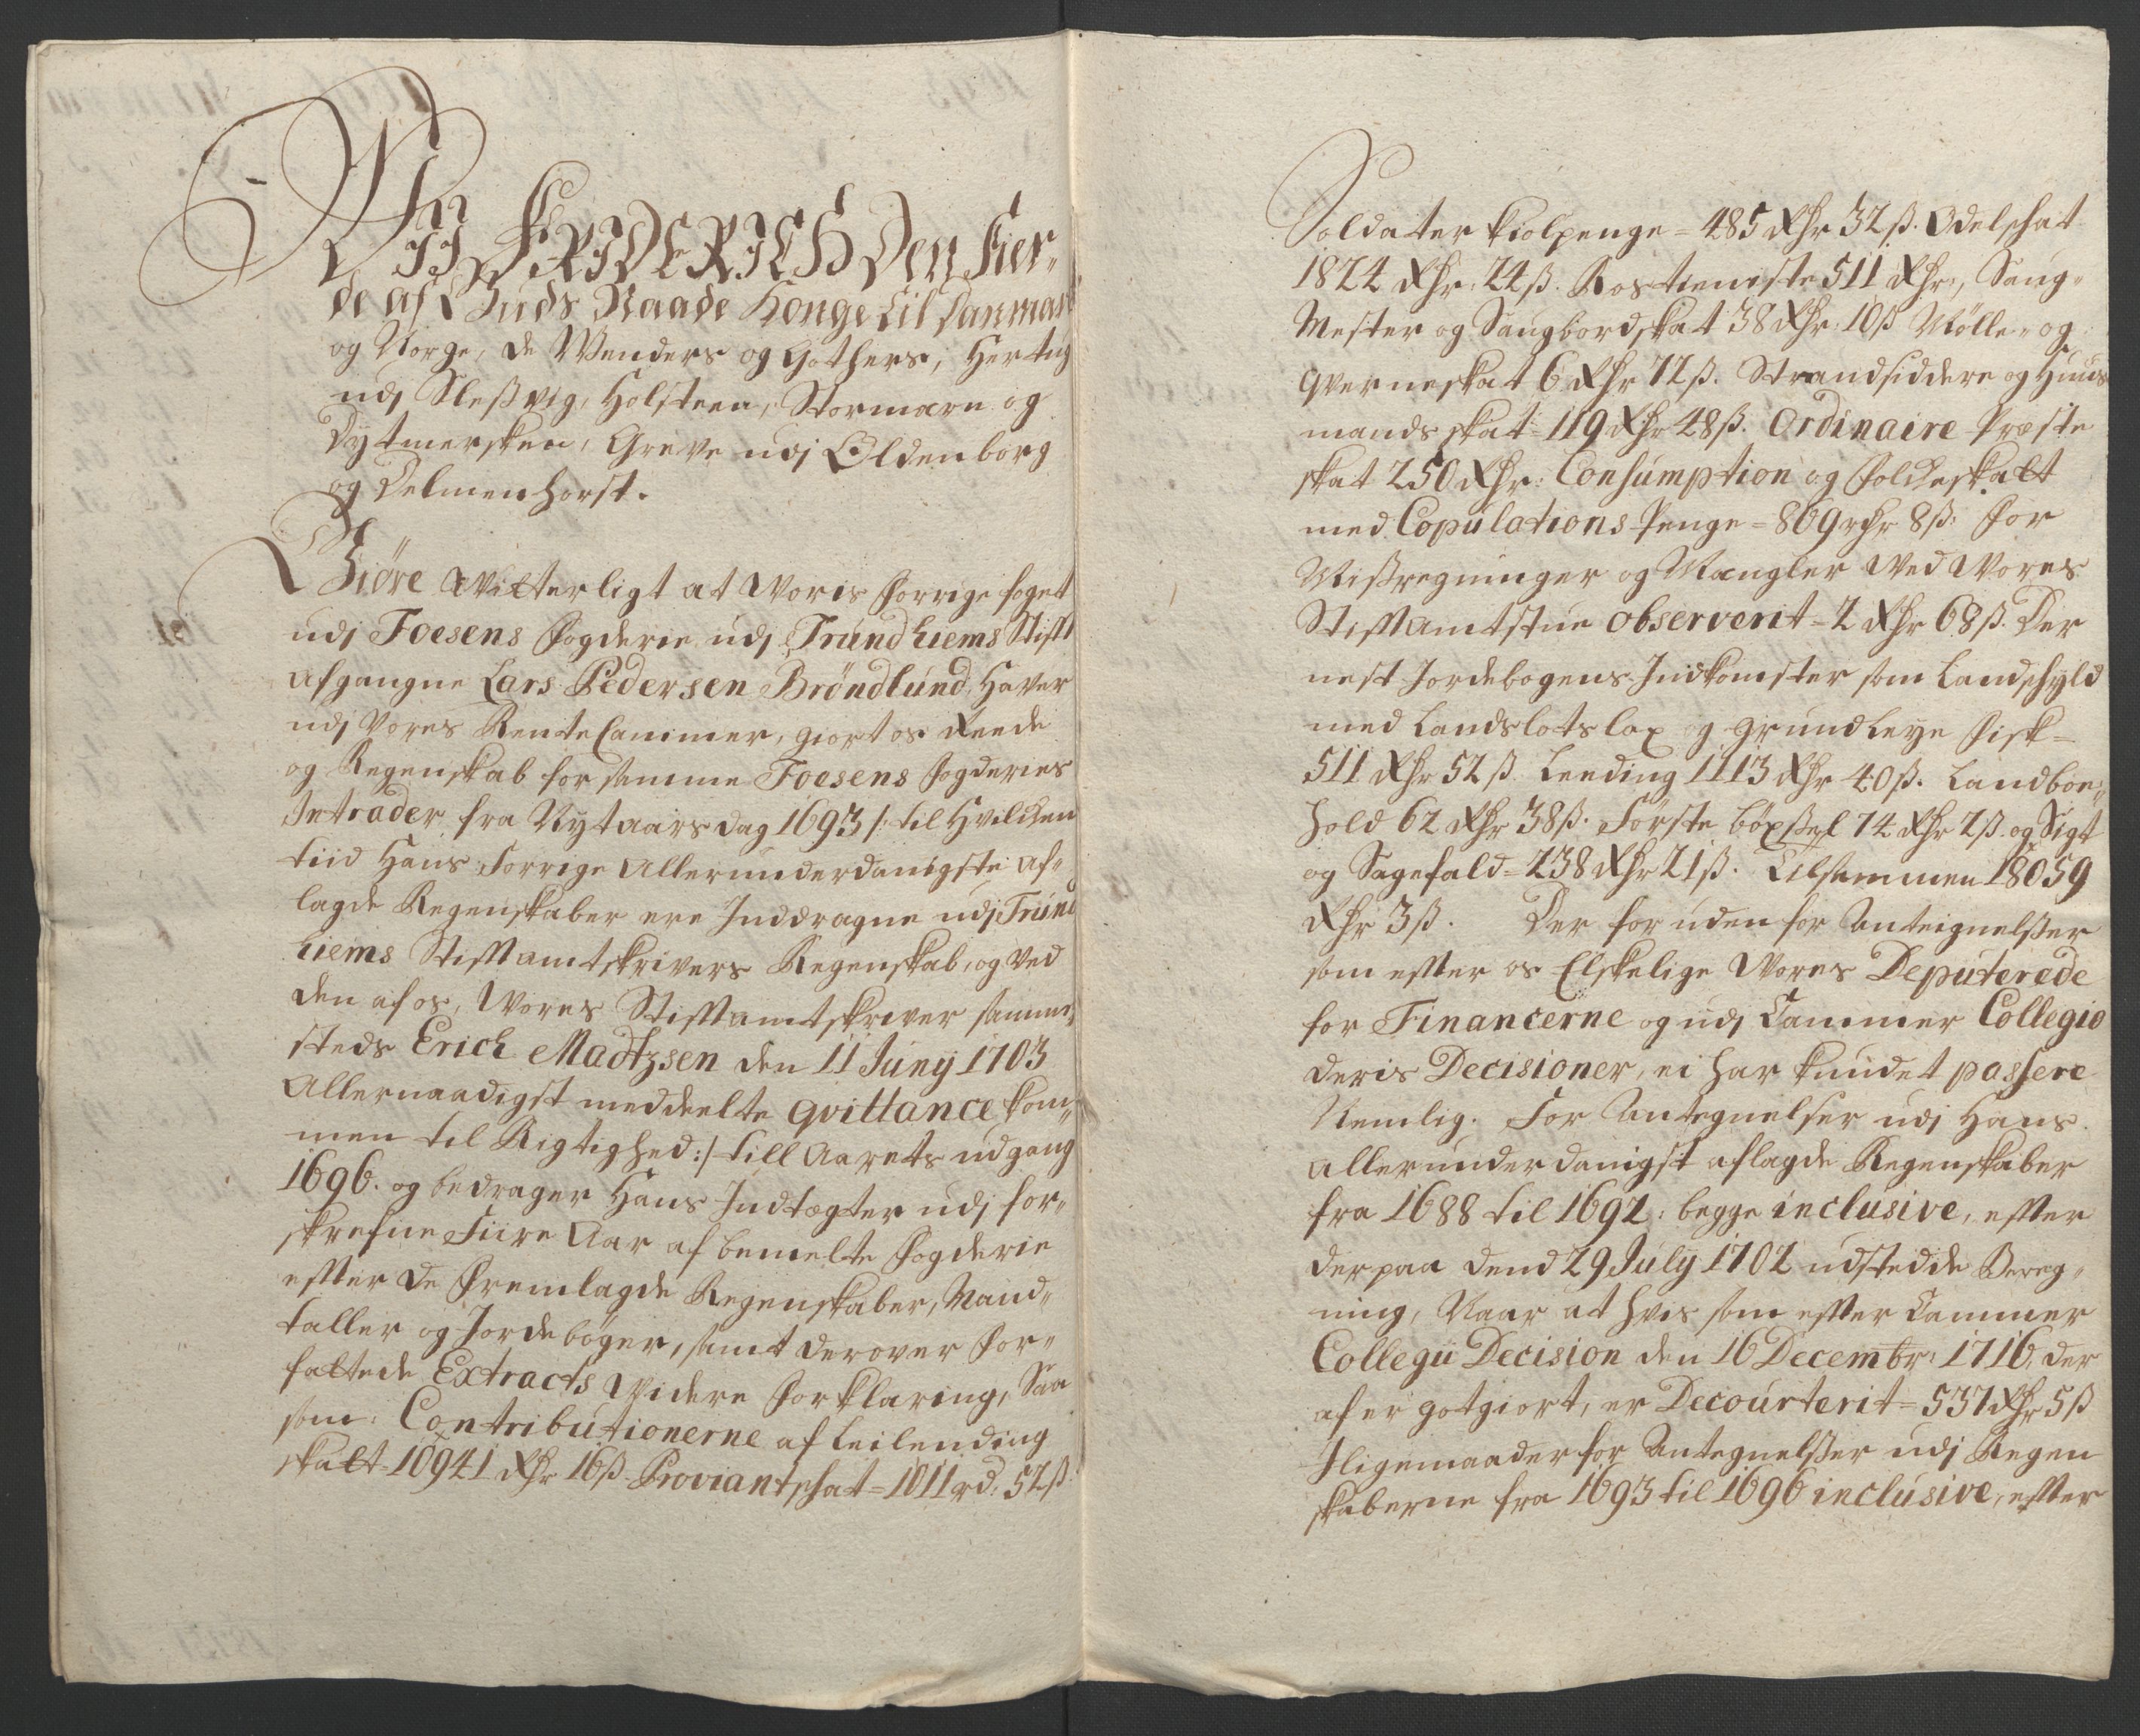 Vii FRIDERICH Den Fier-
de af Guds Naade Konge til Danmark
og Norge, de Wenders og Gothers, Hertug
udj Sleßvig, Holsteen, Stormarn og
Dytmersken, Greve udj Oldenborg
og Delmenhorst.
Giöre Witterligt at Woris forrige foget
udj Foesens fogderie udj Trundhiems Stifft
Afgangne Lars Pedersen Bröndlund, Haver
udj Vores Rente Cammer, giort os Reede
og Regenskab for samme Foesens fogderies
Intrader fra Nytaarsdag 1693 /: til Hvilchen
tiid Hans forrige Allerunderdanigste af-
lagde Regenskaber ere Inddragne udj Trund
hiems Stifftamtskrivers Regenskab, og ved
den af os, Wores Stifftamtskriver samme-
steds Erich Madtzsen den 11 Juny 1703
Allernaadigst meddeelte qvittance kom-
men til Rigtighed :/ till Aarets udgang
1696. og bedrager Hans Indtægter udj for-
skrefne Fiire Aar af bemelte fogderie
effter de fremlagde Regenskaber, Mand-
taller og Jordebøger, samt derover for-
fattede Extracts Widere forklaring, Saa
som: Contributionerne af Leilending
skatt 10941 Rdr 16ß Proviantschat = 1011 rd: 52ß.
Soldater kiolpenge = 485 Rdr 32ß. Odelschat
1824 Rdr: 24ß. Rostieniste 511 Rdr:, Saug-
Mester og Saugbordskat 38 Rdr: 10ß Mölle- og
qverneskat 6 Rdr 72ß. Strandsiddere og Huus
mands skat = 119 Rdr 48ß. Ordinaire Præste
skat 250 Rdr: Consumption og folcheskatt
med Copulations Penge = 869 rdr 8ß: for
Mißregninger og Mangler Wed Wores
Stifftamtstue observerit = 2 Rdr 68ß. Der
nest Jordebogens Indkomster som Landschyld
med Landslotslax og grundleye fisk =
511 Rdr 52ß. Leeding 1113 Rdr 40ß. Landboe-
hold 62 Rdr 38ß. Förste böxßel 74 Rdr 2ß. og Sigt
og Sagefald = 238 Rdr 21ß. Tilsammen 18059
Rdr 3ß. Der for uden for Anteignelßer
som effter os Elskelige Wores Deputerede
for Financerne og udj Cammer Collegio
deris Decisioner, ei har kundet passere
Nemlig. For Antegnelser udj Hans
allerunderdanigst aflagde Regenskaber
fra 1688 til 1692: begge inclusive, effter
derpaa dend 29 July 1702 udstedde Bereg-
ning, Naar at hvis som effter Cammer
Collegii Decision den 16 Decembr: 1716, der
af er gotgiort, er Decourterit = 537 Rdr 5ß
Iligemaader for Antegnelßer udj Regen
skaberne fra 1693 til 1696 inclusive, effter